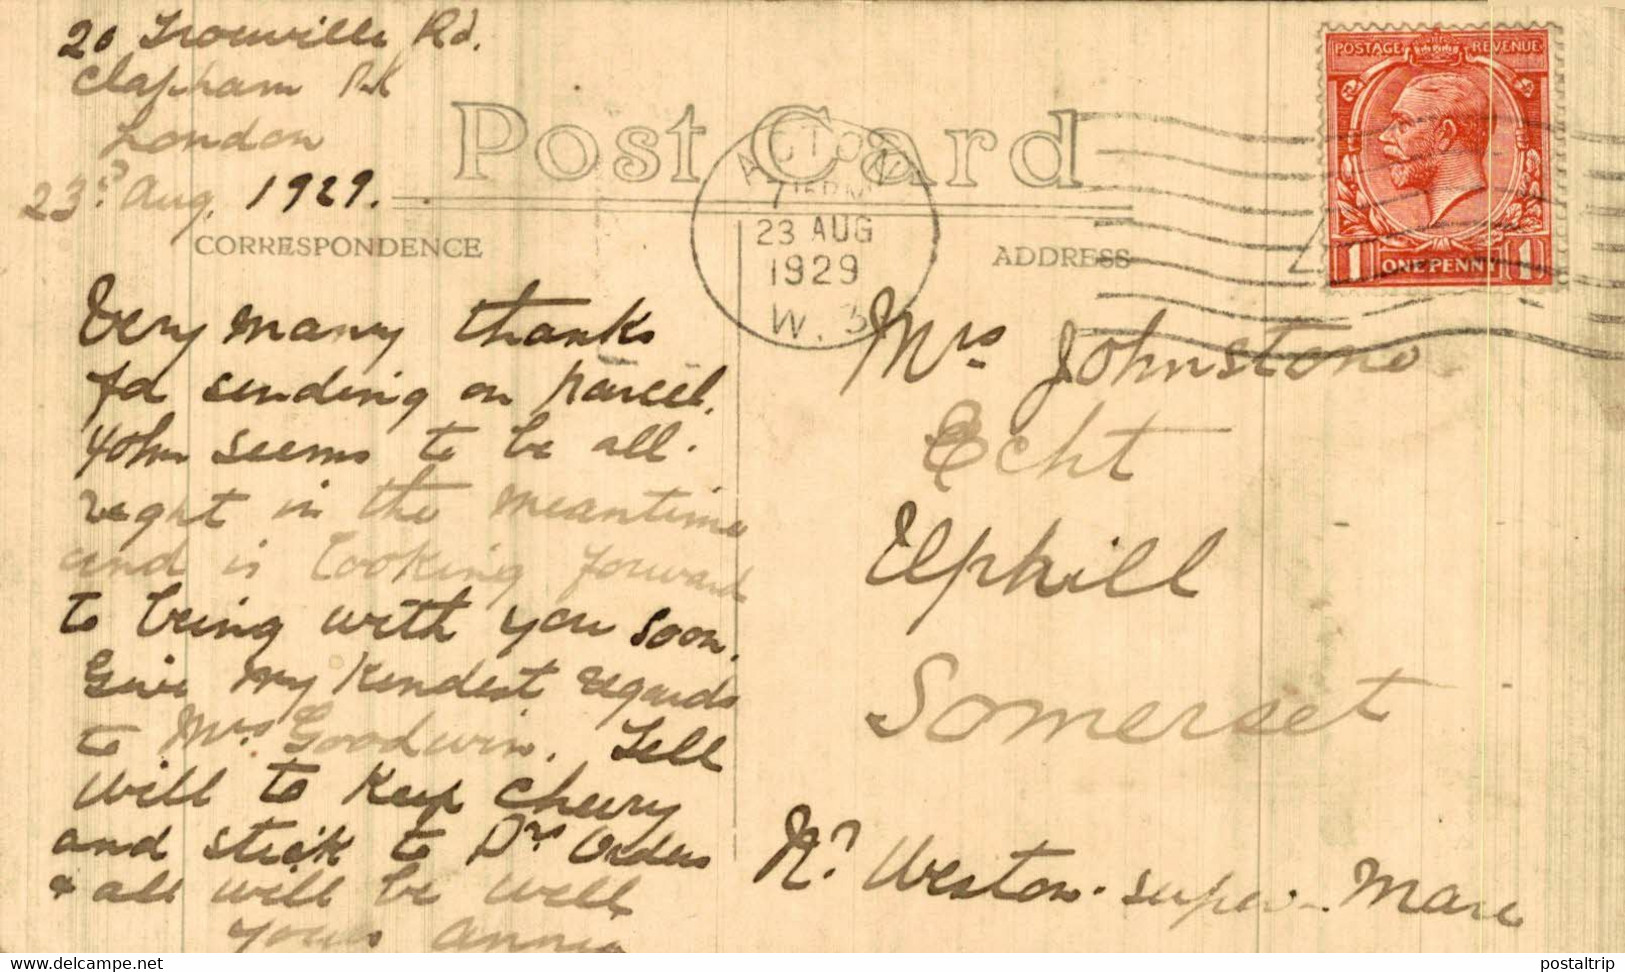 20 Trouville Rd.
Clapham Pk
London
23rd Aug. 1929.
Post Card
CORRESPONDENCE
ADDRESS
ACTON
7 15 PM
23 AUG
1929
W. 3
POSTAGE REVENUE
1 ONE PENNY 1
Very many thanks
for sending on parcel.
John seems to be all.
right in the meantime
and is looking forward
to being with you soon.
Give my kindest regards
to Mrs Goodwin. Tell
Will to keep cheery
and stick to Drs Orders
& all will be well
Yours Annie
Mrs Johnstone
Echt
Uphill
Somerset
Nr Weston-super-Mare
postaltrip